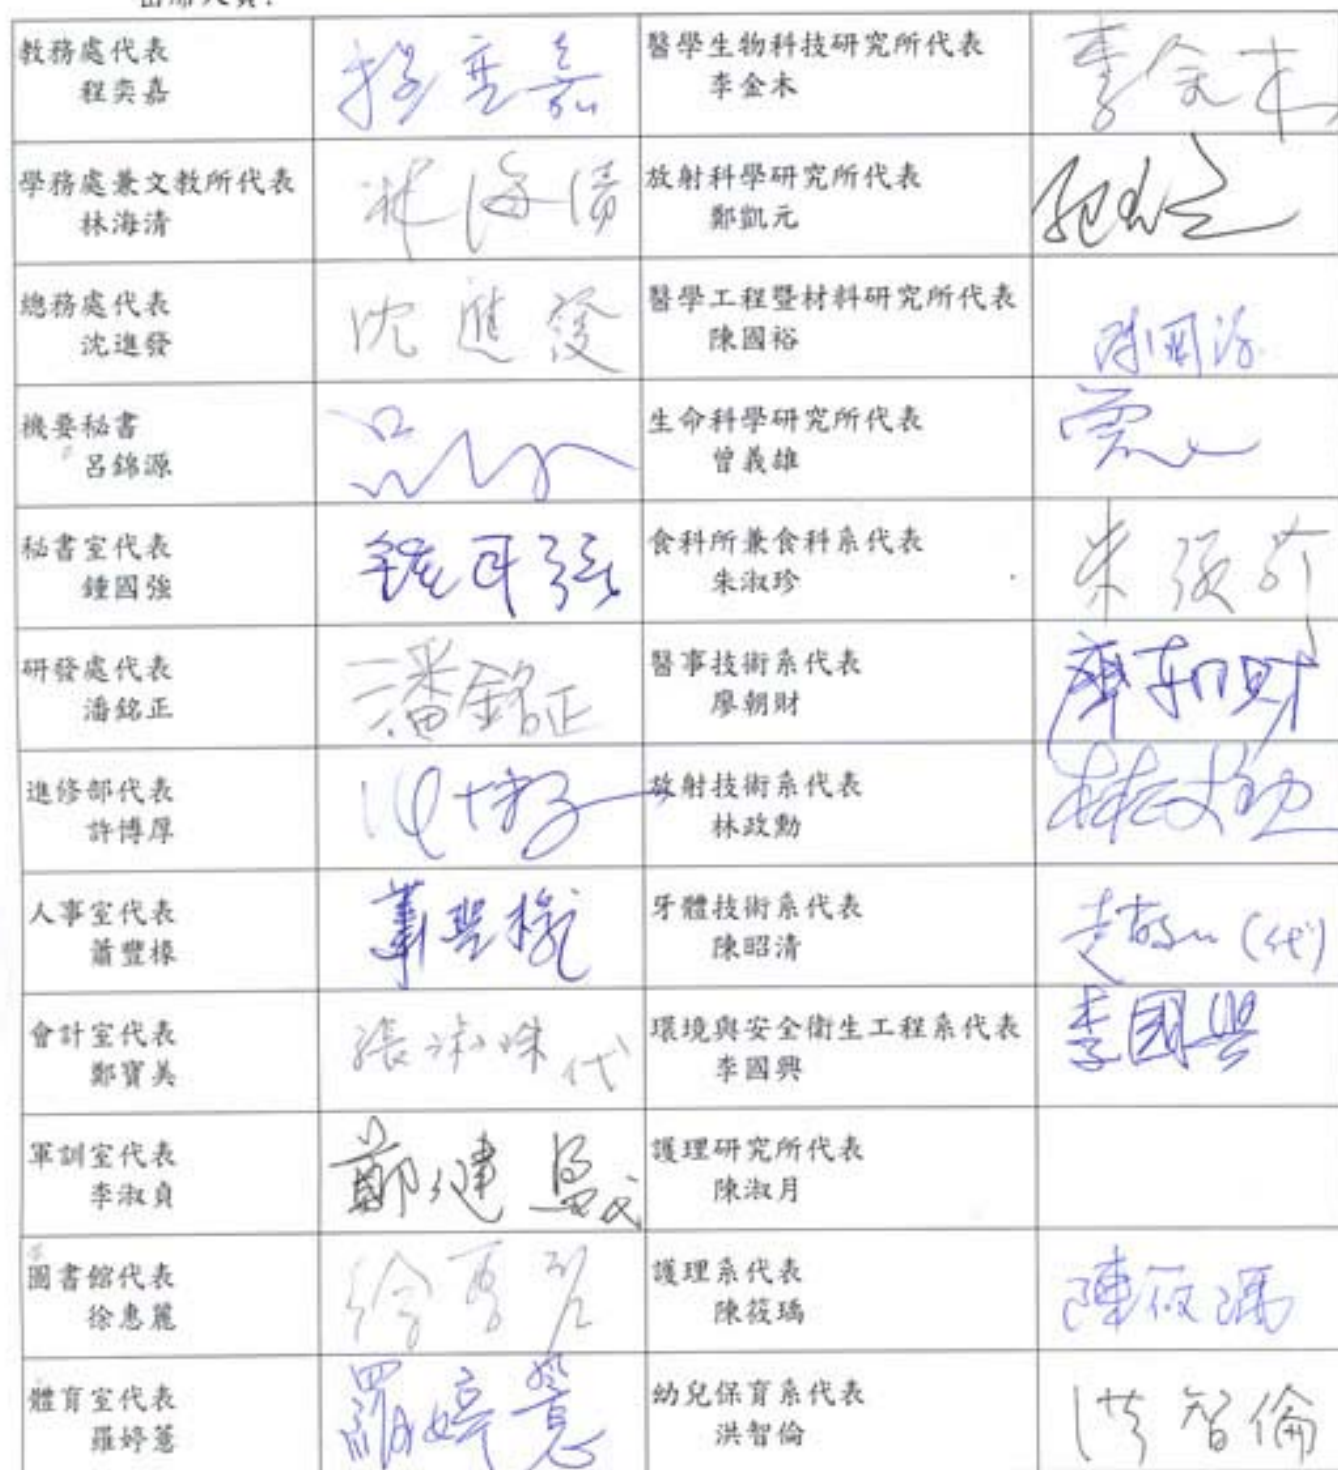 出席人員：
教務處代表
程奕嘉
程奕嘉
醫學生物科技研究所代表
李金木
李金木
學務處兼文教所代表
林海清
林海清
放射科學研究所代表
鄭凱元
總務處代表
沈進發
沈進發
醫學工程暨材料研究所代表
陳國裕
陳國裕
機要秘書
呂錦源
生命科學研究所代表
曾義雄
秘書室代表
鍾國強
食科所兼食科系代表
朱淑珍
研發處代表
潘銘正
潘銘正
醫事技術系代表
廖朝財
廖朝財
進修部代表
許博厚
放射技術系代表
林政勳
人事室代表
蕭豐椽
蕭豐椽
牙體技術系代表
陳昭清
(代)
會計室代表
鄭寶美
張淑珠 代
環境與安全衛生工程系代表
李國興
李國興
軍訓室代表
李淑貞
鄭健
護理研究所代表
陳淑月
圖書館代表
徐惠麗
護理系代表
陳筱瑀
陳筱瑀
體育室代表
羅婷薏
羅婷薏
幼兒保育系代表
洪智倫
洪智倫